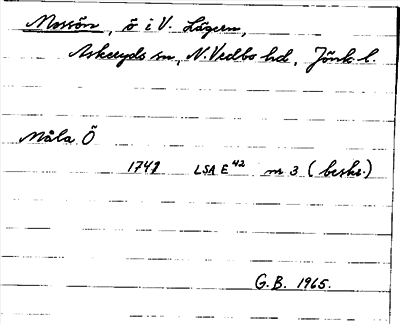 Mossön, ö i V. Lägern,
Askeryds sn, N. Vedbo hd, Jönk. l.
Måla Ö
1741 LSA E42 nr 3 (beskr.)
G.B. 1965.